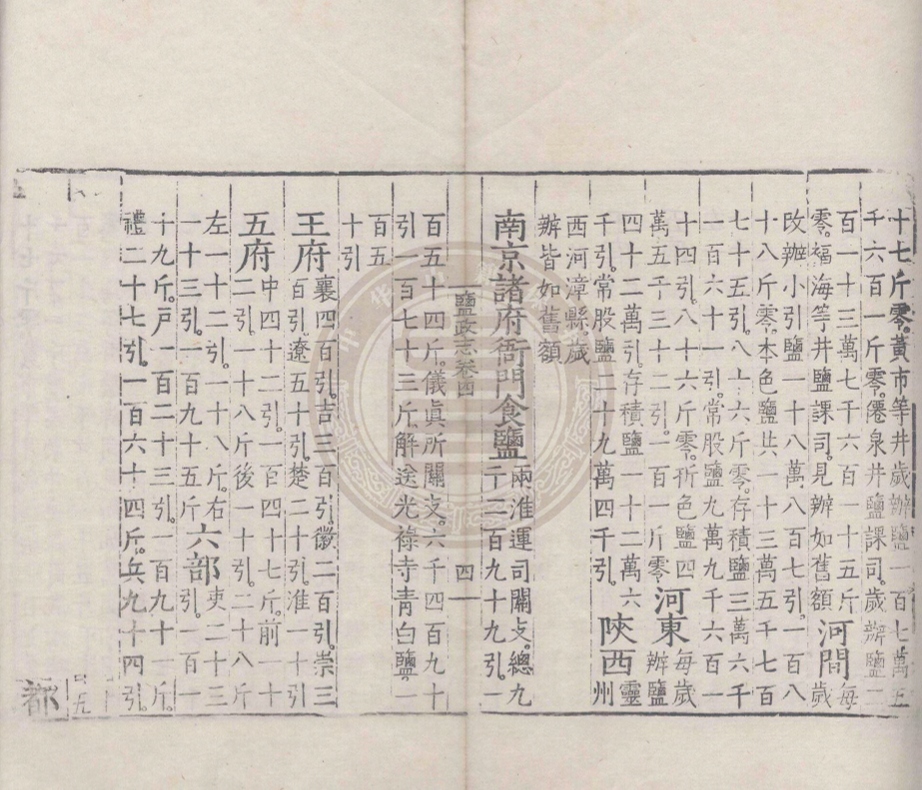 十七斤零。黃市等井歲辦鹽一百七萬五
千六百一斤零。僊泉井鹽課司。歲辦鹽二
百一十三萬七千六百一十五斤 河間 每
零。福海等井鹽課司。見辦如舊額 歲
改辦小引鹽一十八萬八百七引。一百八
十八斤零。本色鹽共一十三萬五千七百
七十五引。八十六斤零。存積鹽三萬六千
一百六十一引。常股鹽九萬九千六百一
十四引。八十六斤零。折色鹽四 河東 每歲
萬五千三十二引。一百一斤零 辦鹽
四十二萬引。存積鹽一十二萬六 陝西 靈
千引。常股鹽二十九萬四千引。 州
西河漳縣。歲
辦皆如舊額
南京諸府衙門食鹽 兩淮運司關支。總九
千三百九十九引。一
鹽政志卷四 四
百五十四斤。儀真所關支。六千四百九十
引一百七十三斤。解送光祿寺青白鹽二
百五
十引
王府 襄四百引。吉三百引。徽二百引。崇三
百引。遼五十引。楚二十引。淮一十引
五府 中四十二引。一百四十七斤。前一十
二引。一十八斤後一十引。二十八斤
左一十二引。一十八斤。右 六部 吏二十三
一十三引。一百九十五斤 引。一百一
十九斤。戶一百二十三引。一百九十一斤。
禮二十七引。一百六十四斤。兵九十四引。
都